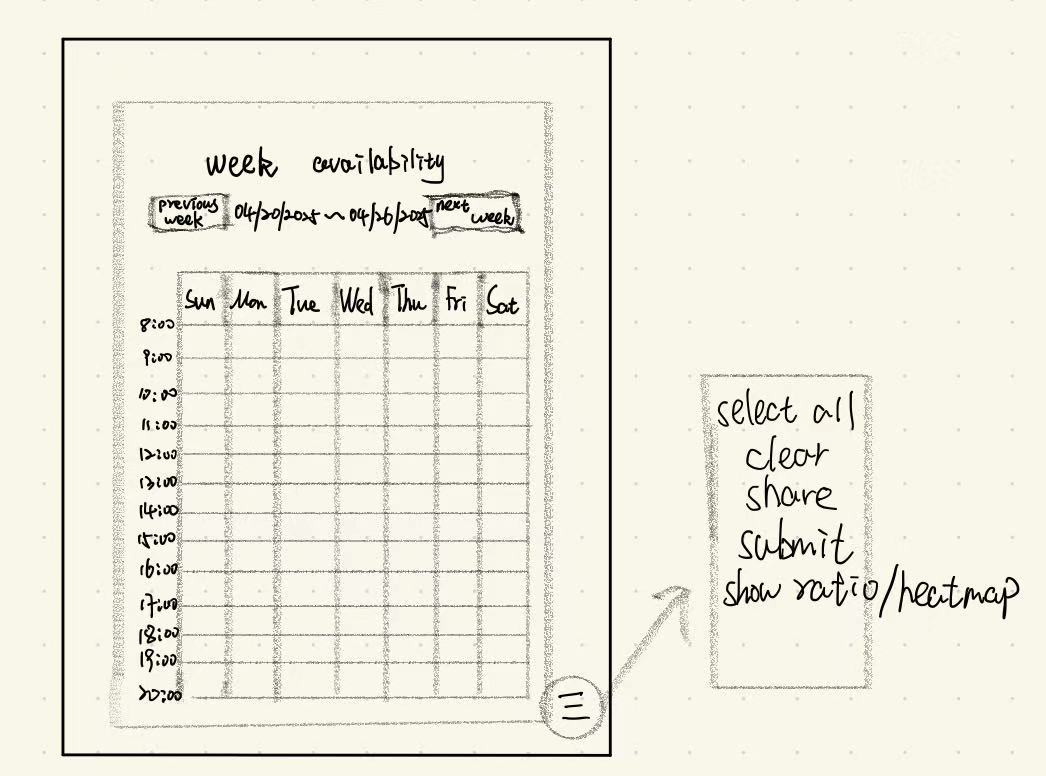 week availability
previous week 04/20/2025 ~ 04/26/2025 next week
Sun Mon Tue Wed Thu Fri Sat
8:00
9:00
10:00
11:00
12:00
13:00
14:00
15:00
16:00
17:00
18:00
19:00
20:00
select all
clear
share
submit
show ratio/heatmap